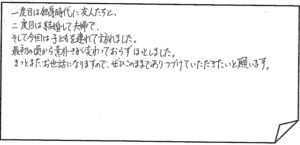 一度目は独身時代に友人たちと、
二度目は結婚して夫婦で、
そして今回は子どもを連れて訪れました。
最初の頃から素朴さが変わっておらずほっとしました。
きっとまたお世話になりますので、ぜひこのままでありつづけていただきたいと願います。